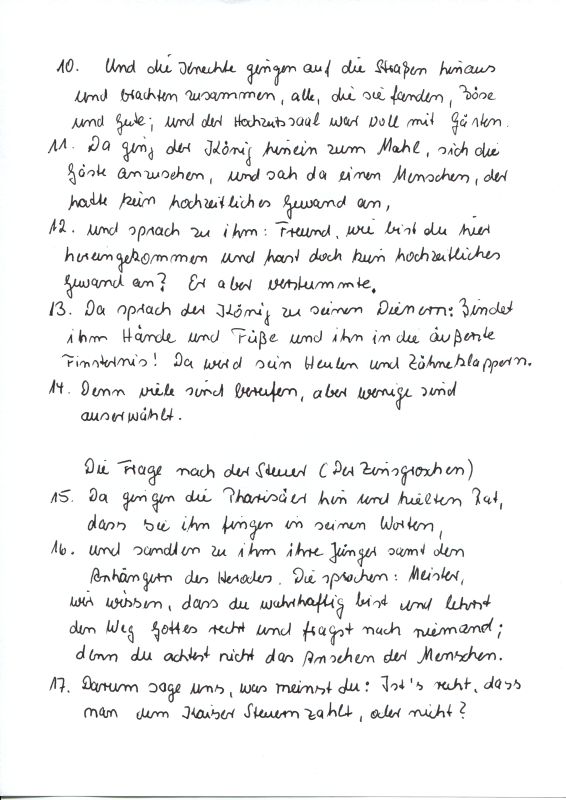 10. Und die Knechte gingen auf die Straßen hinaus
und brachten zusammen, alle, die sie fanden, Böse
und Gute; und der Hochzeitssaal war voll mit Gästen.
11. Da ging der König hinein zum Mahl, sich die
Gäste anzusehen, und sah da einen Menschen, der
hatte kein hochzeitliches Gewand an,
12. und sprach zu ihm: Freund, wie bist du hier
hereingekommen und hast doch kein hochzeitliches
Gewand an? Er aber verstummte.
13. Da sprach der König zu seinen Dienern: Bindet
ihm Hände und Füße und ihn in die äußerste
Finsternis! Da wird sein Heulen und Zähneklappern.
14. Denn viele sind berufen, aber wenige sind
auserwählt.
Die Frage nach der Steuer (Der Zinsgroschen)
15. Da gingen die Pharisäer hin und hielten Rat,
dass sie ihn fingen in seinen Worten,
16. und sandten zu ihm ihre Jünger samt den
Anhängern des Herodes. Die sprachen: Meister,
wir wissen, dass du wahrhaftig bist und lehrst
den Weg Gottes recht und fragst nach niemand;
denn du achtest nicht das Ansehen der Menschen.
17. Darum sage uns, was meinst du: Ist's recht, dass
man dem Kaiser Steuern zahlt, oder nicht?